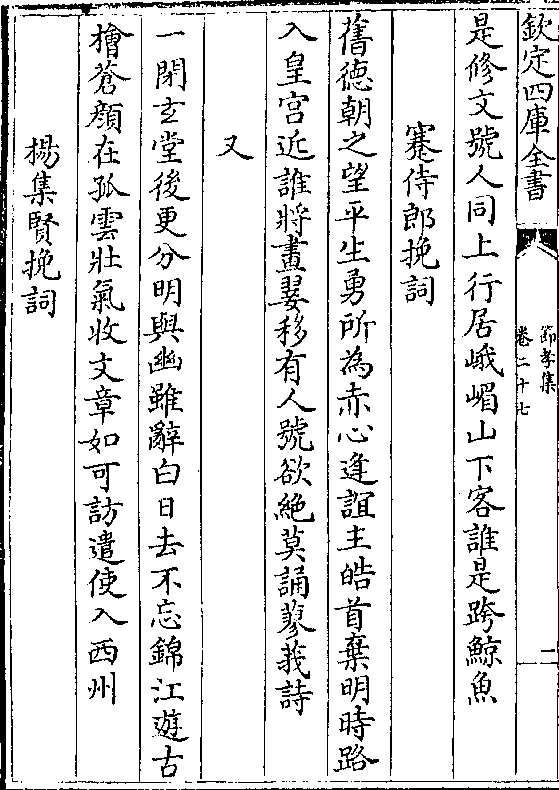 欽定四庫全書
節孝集
卷二十七
二
是修文號人同上行居峨嵋山下客誰是跨鯨魚
蹇侍郎挽詞
舊德朝之望平生勇所為赤心逢誼主皓首棄明時路
入皇宮近誰將畫翣移有人號欲絶莫誦蓼莪詩
又
一閉玄堂後更分明與幽雖辭白日去不忘錦江遊古
檜蒼顔在孤雲壯氣收文章如可訪遣使入西州
揚集賢挽詞